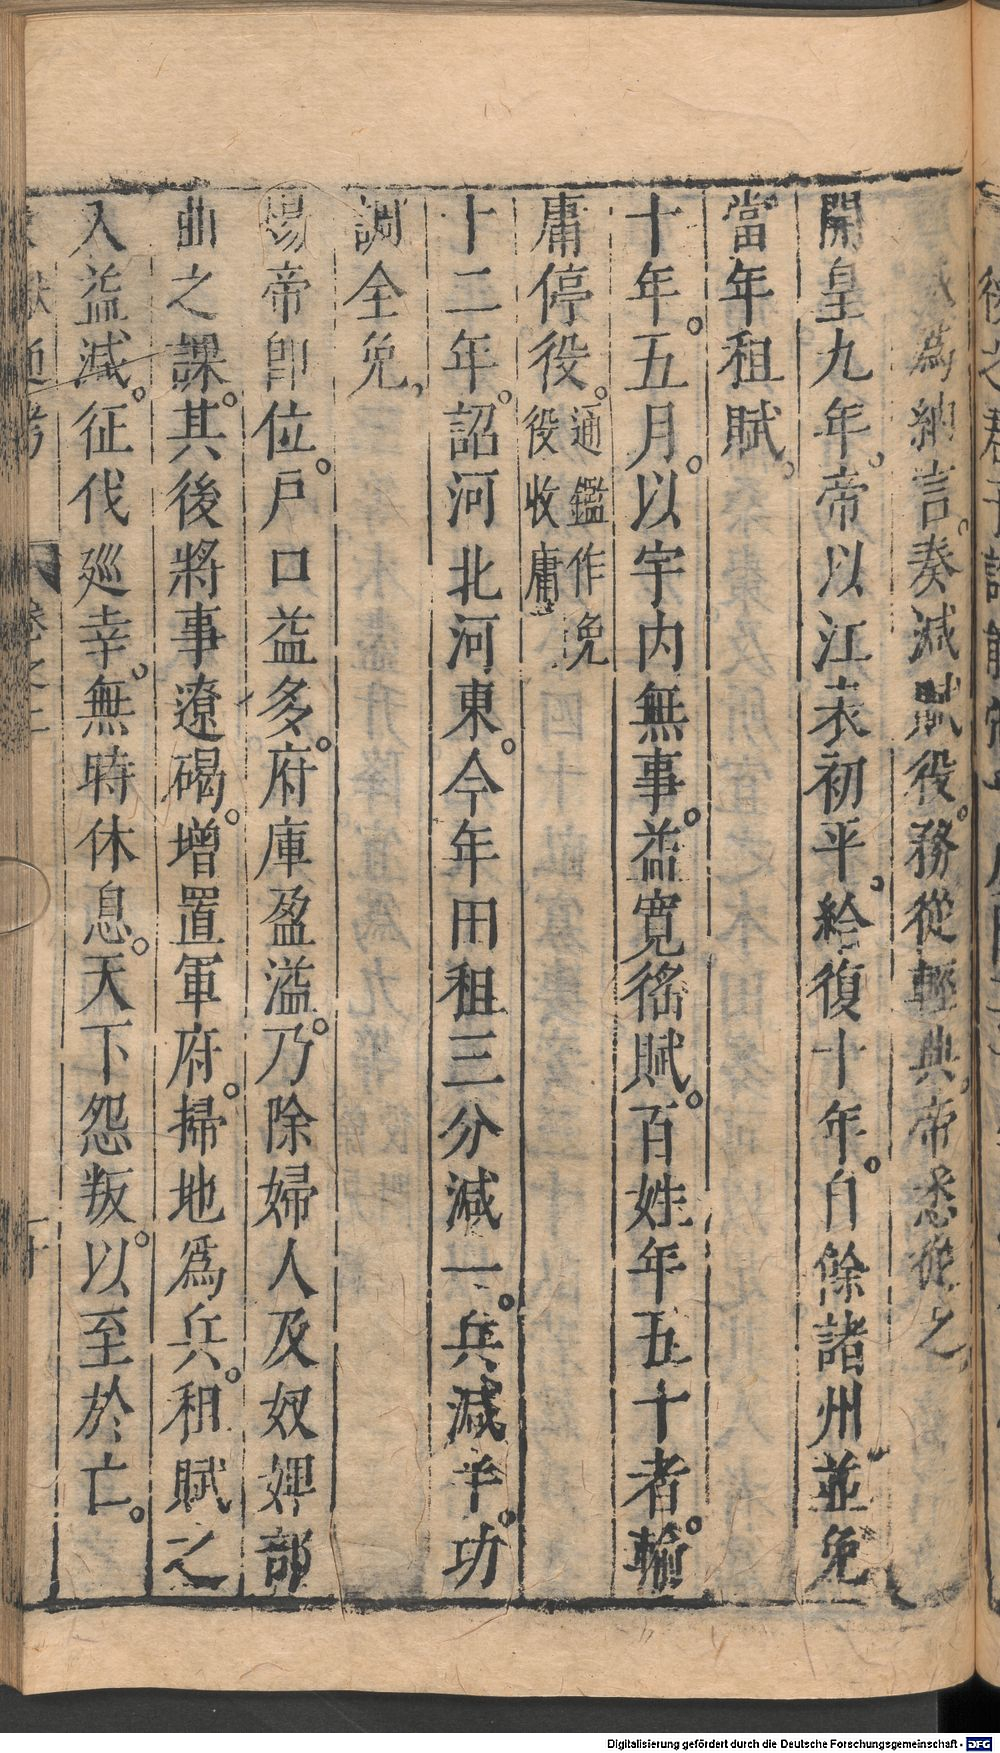 威為納言。奏減賦役。務從輕典。帝悉從之。
開皇九年。帝以江表初平。給復十年。自餘諸州並免
當年租賦。
十年。五月。以宇內無事。益寬徭賦。百姓年五十者。輸
庸停役。通鑑作免
役收庸
十二年。詔河北河東。今年田租三分減一。兵減半。功
調全免。
煬帝即位。戶口益多。府庫盈溢。乃除婦人及奴婢部
曲之課。其後將事遼碣。增置軍府。掃地為兵。租賦之
入益減。征伐廵幸。無時休息。天下怨叛。以至於亡。
通考
卷之二
Digitalisierung gefördert durch die Deutsche Forschungsgemeinschaft - DFG